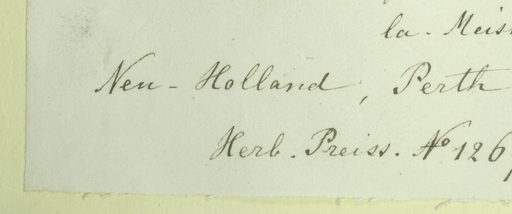 la. Meis
Neu-Holland, Perth
Herb. Preiss. No 126